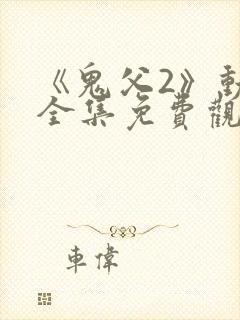 《鬼父2》動
全集免費觀
車偉